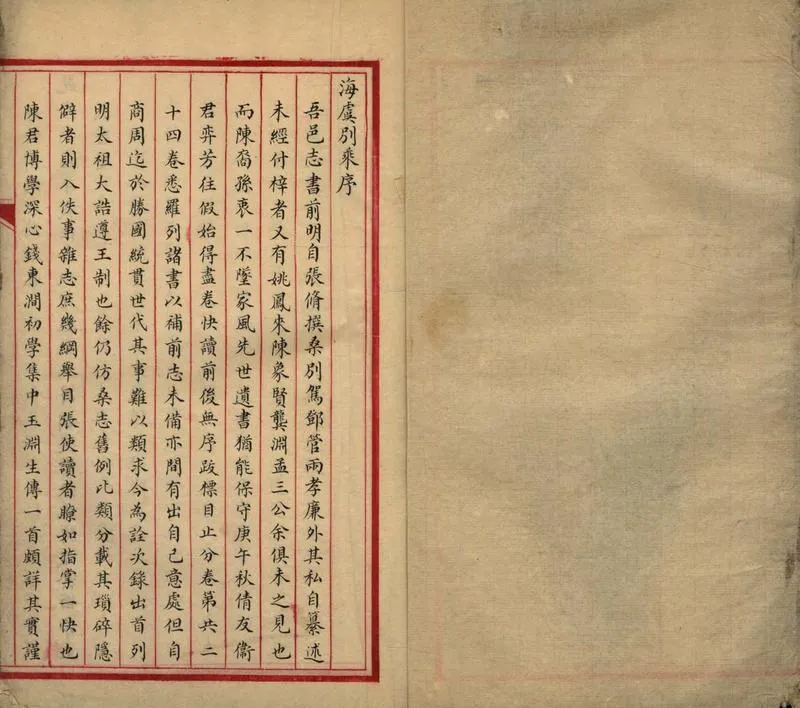 海虞別乘序
吾邑志書前明自張脩撰桑別駕鄧管兩孝廉外其私自纂述
未經付梓者又有姚鳳來陳象賢龔淵孟三公余俱未之見也
而陳裔孫衷一不墜家風先世遺書猶能保守庚午秋倩友衞
君弈芳往假始得盡卷快讀前後無序跋標目止分卷第共二
十四卷悉羅列諸書以補前志未備亦間有出自己意處但自
商周迄於勝國統貫世代其事難以類求今為詮次錄出首列
明太祖大誥遵王制也餘仍仿桑志舊例比類分載其瑣碎隱
僻者則入佚事雜志庶幾綱舉目張使讀者瞭如指掌一快也
陳君博學深心錢東澗初學集中玉淵生傳一首頗詳其實謹